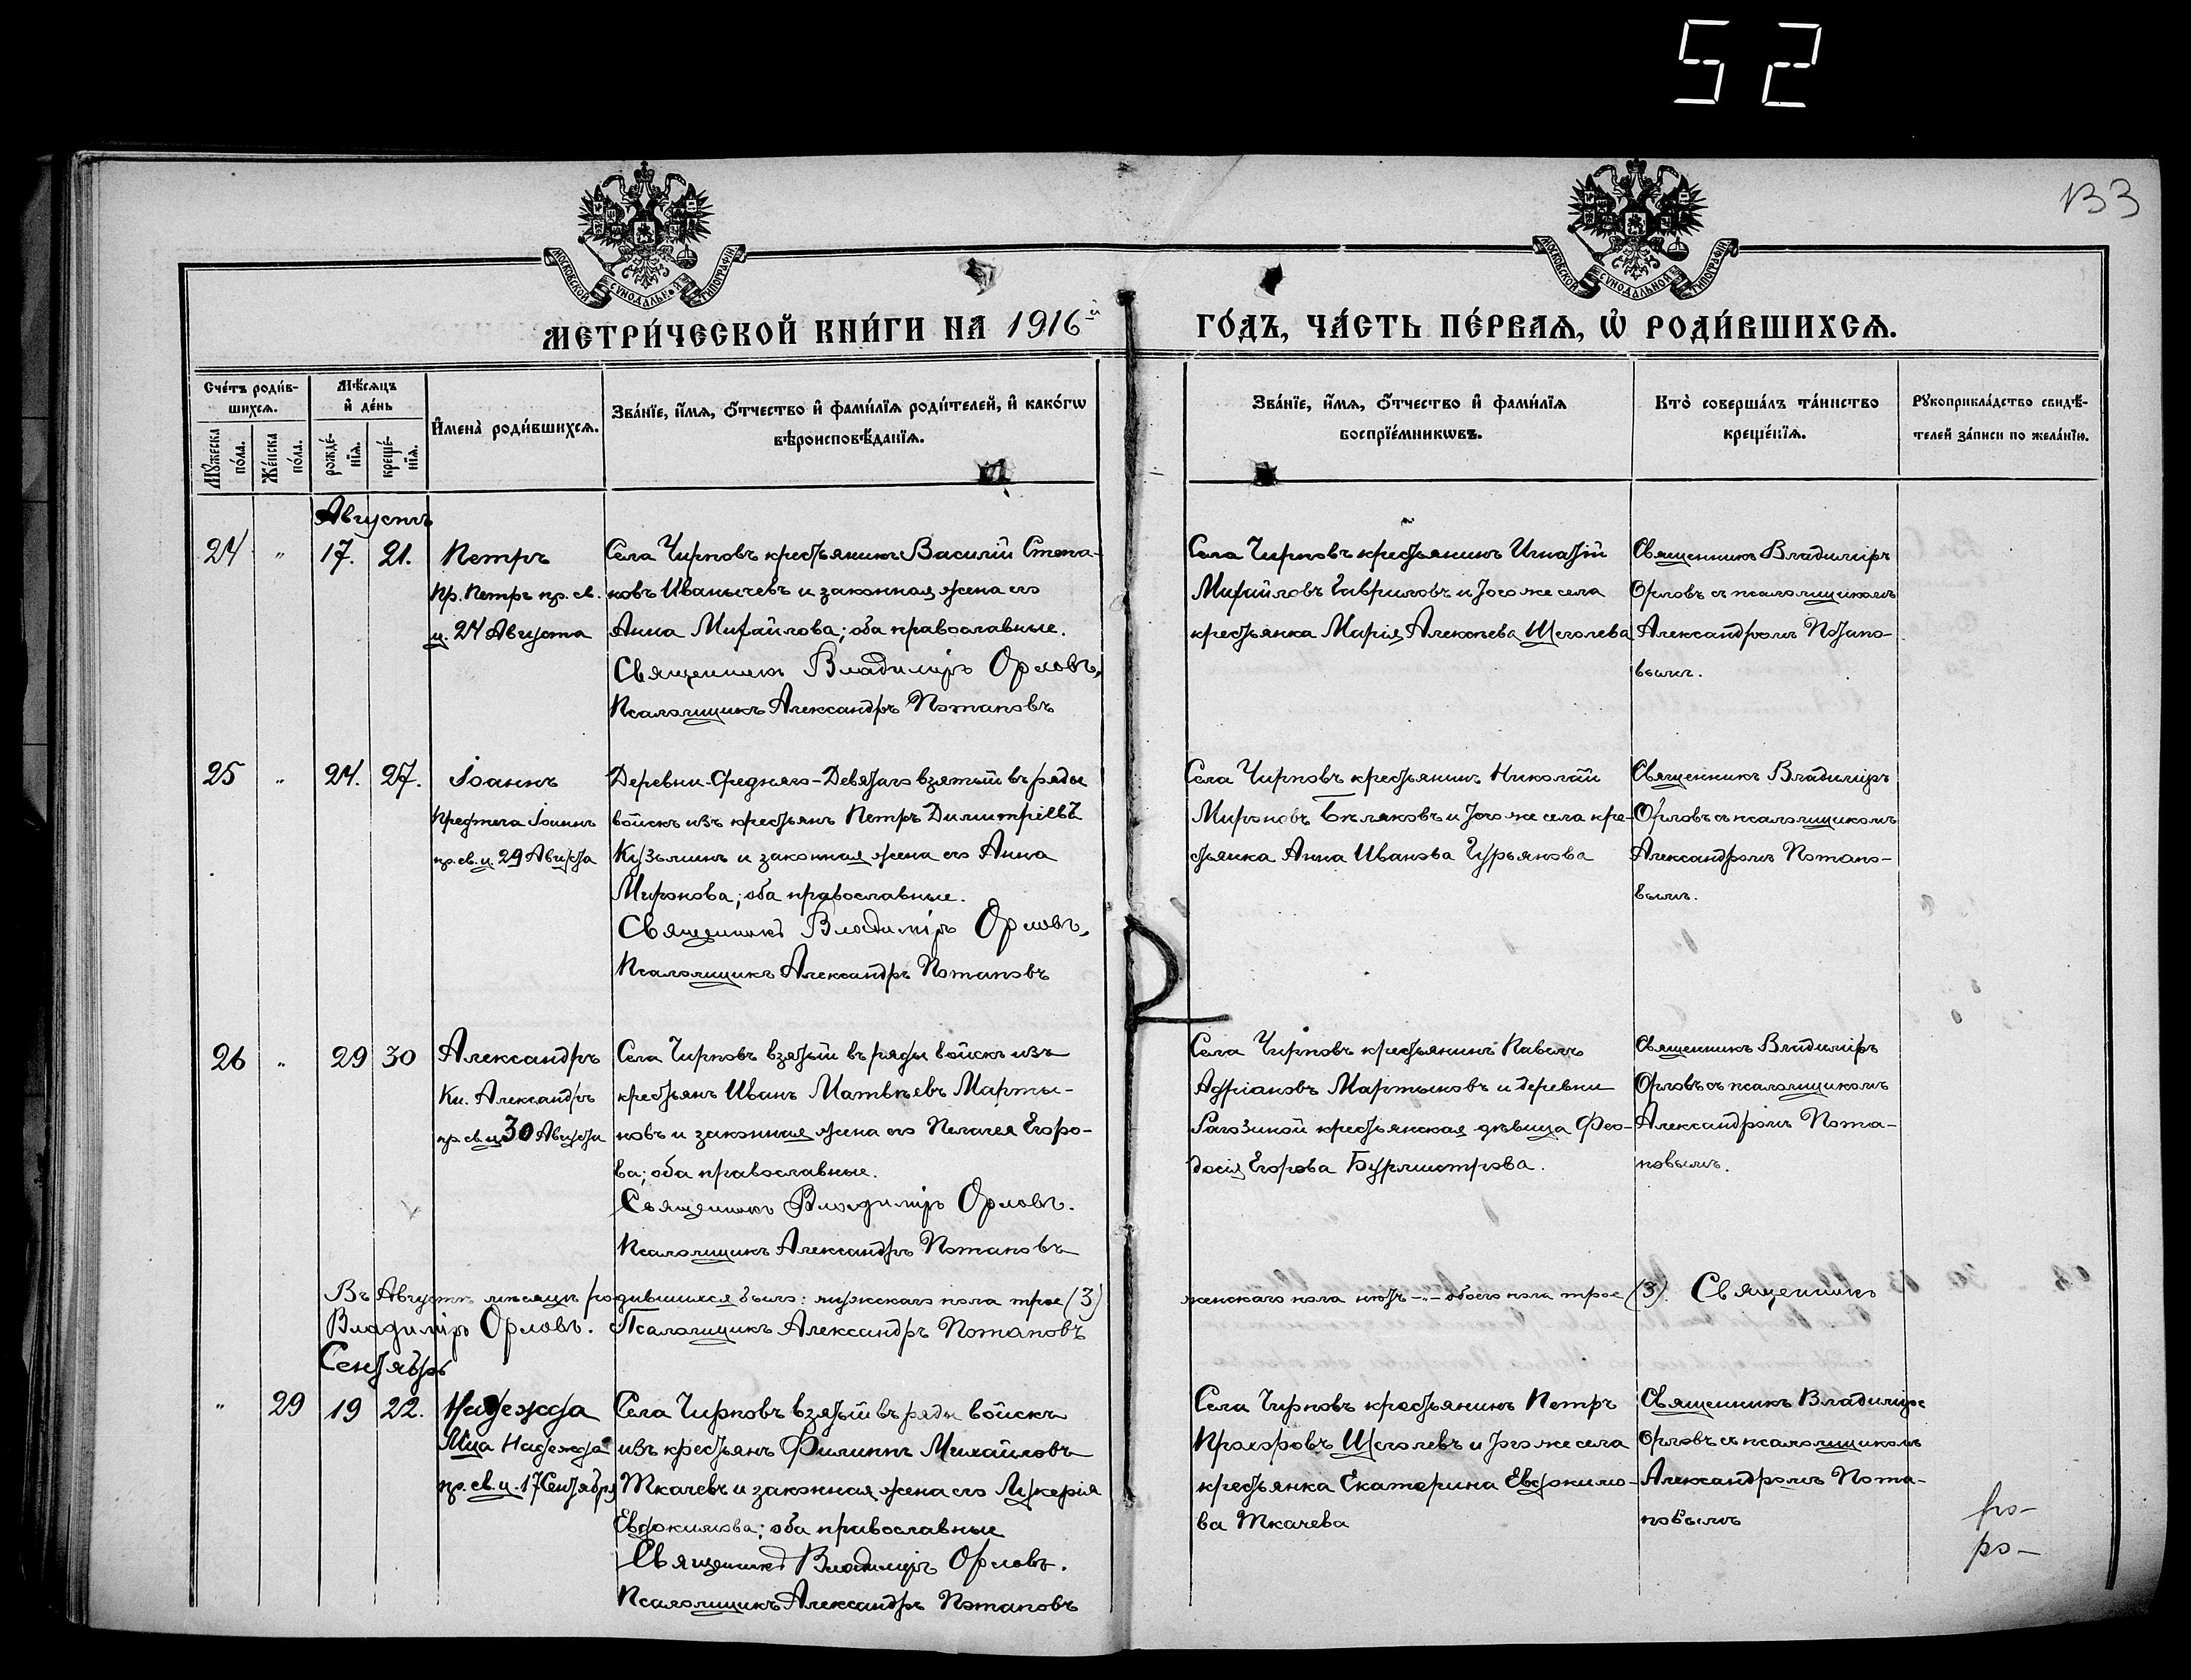 52
133
МОСКОВСКОЙ СѴНОДАЛЬНОЙ ТИПОГРАФІИ
МОСКОВСКОЙ СѴНОДАЛЬНОЙ ТИПОГРАФІИ
МЕТРИ́ЧЕСКОЙ КНИ́ГИ НА 1916й ГО́ДЪ, ЧА́СТЬ ПЕ́РВАѦ, Ѽ РОДИ́ВШИХСѦ.
Сче́тъ роди́в-
шихсѧ.
Мꙋ́жеска по́ла.
Же́нска по́ла.
Мѣ́сѧцъ
и҆ де́нь
рожде́-
нїѧ.
креще́-
нїѧ.
И҆мена̀ роди́вшихсѧ.
Зва́нїе, и҆́мѧ, ѻ҆́тчество и҆ фами́лїѧ роди́телей, и҆ како́гѡ
вѣроисповѣ́данїѧ.
Зва́нїе, и҆́мѧ, ѻ҆́тчество и҆ фами́лїѧ
воспрїе́мникѡвъ.
Кто̀ соверша́лъ та́инство
креще́нїѧ.
Рꙋкоприкла́дство свидѣ́-
телей за́писи по жела́нїю.
Августъ
24 " 17. 21.
Петръ
Пр. Петръ пр. св.
ц. 24 Августа
Села Чирповъ крестьянинъ Василій Степа-
новъ Иванычевъ и законная жена его
Анна Михайлова; оба православные.
Священникъ Владиміръ Орловъ.
Псаломщикъ Александръ Потаповъ
Села Чирповъ крестьянинъ Игнатій
Михайловъ Гавриловъ и того же села
крестьянка Марія Алексѣева Щеголева
Священникъ Владиміръ
Орловъ съ псаломщикомъ
Александромъ Потапо-
вымъ.
25 " 24. 27.
Іоаннъ
Предтеча Іоаннъ
пр. св. ц. 29 Августа
Деревни Средняго-Девятаго взятый въ ряды
войскъ изъ крестьянъ Петръ Димитріевъ
Кузьминъ и законная жена его Анна
Миронова; оба православные.
Священникъ Владиміръ Орловъ.
Псаломщикъ Александръ Потаповъ
Села Чирповъ крестьянинъ Николай
Мироновъ Бѣляковъ и того же села кре-
стьянка Анна Иванова Гурьянова
Священникъ Владиміръ
Орловъ съ псаломщикомъ
Александромъ Потапо-
вымъ.
26 " 29 30
Александръ
Кн. Александръ
пр. св. ц. 30 Августа
Села Чирповъ взятый въ ряды войскъ изъ
крестьянъ Иванъ Матвѣевъ Марты-
новъ и законная жена его Пелагея Егоро-
ва; оба православные.
Священникъ Владиміръ Орловъ.
Псаломщикъ Александръ Потаповъ
Села Чирповъ крестьянинъ Павелъ
Адріановъ Мартыновъ и деревни
Рагозиной крестьянская дѣвица Фео-
досія Егорова Бурмистрова.
Священникъ Владиміръ
Орловъ съ псаломщикомъ
Александромъ Пота-
повымъ.
Въ Августѣ мѣсяцѣ родившихся было: мужскаго пола трое (3)
женскаго пола нѣтъ -"- обоего пола трое (3). Священникъ
Владиміръ Орловъ. Псаломщикъ Александръ Потаповъ
Сентябрь
" 29 19 22.
Надежда
Мца Надежда
пр. св. ц. 17 Сентября
Села Чирповъ взятый въ ряды войскъ
изъ крестьянъ Филиппъ Михайловъ
Ткачевъ и законная жена его Лукерія
Евдокимова; оба православные
Священникъ Владиміръ Орловъ.
Псаломщикъ Александръ Потаповъ
Села Чирповъ крестьянинъ Петръ
Прохоровъ Щеголевъ и того же села
крестьянка Екатерина Евдокимо-
ва Ткачева
Священникъ Владиміръ
Орловъ съ псаломщикомъ
Александромъ Пота-
повымъ
ро-
ро-